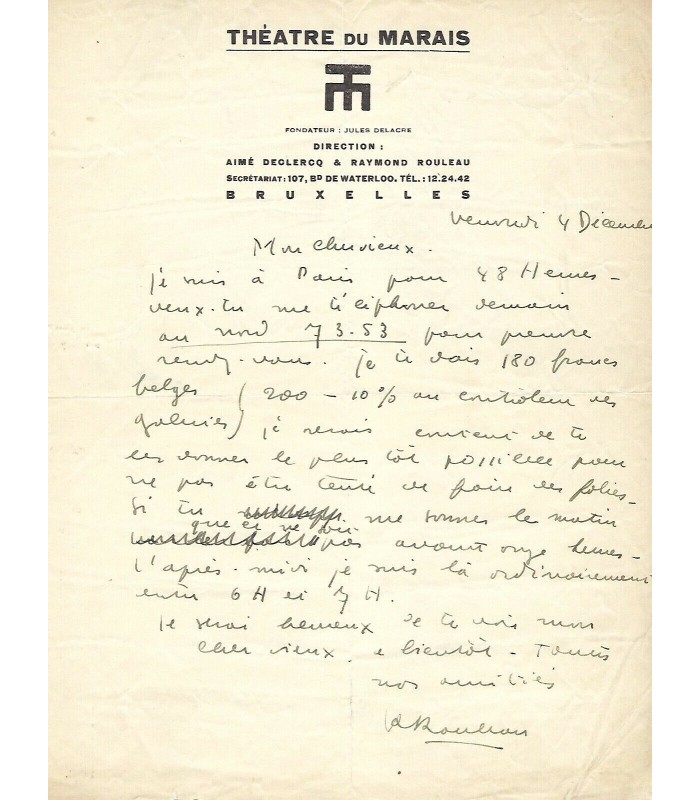 THÉATRE DU MARAIS
FONDATEUR : JULES DELACRE
DIRECTION :
AIMÉ DECLERCQ & RAYMOND ROULEAU
SECRÉTARIAT : 107, BD DE WATERLOO. TÉL. : 12.24.42
BRUXELLES
Vendredi 4 Décembre
Mon cher vieux.
Je suis à Paris pour 48 Heures -
veux-tu me téléphoner demain
au nord 73-53 pour prendre
rendez-vous. Je te dois 180 francs
belges (200 - 10% au contrôleur des
galeries) je serais content de te
les donner le plus tôt possible pour
ne pas être tenté de faire des folies -
Si tu me sonnes le matin
que ce ne soit
pas avant onze heures -
L'après-midi je suis là ordinairement
entre 6 H et 7 H.
Je serai heureux de te voir mon
cher vieux. à bientôt - Toutes
nos amitiés
R Rouleau